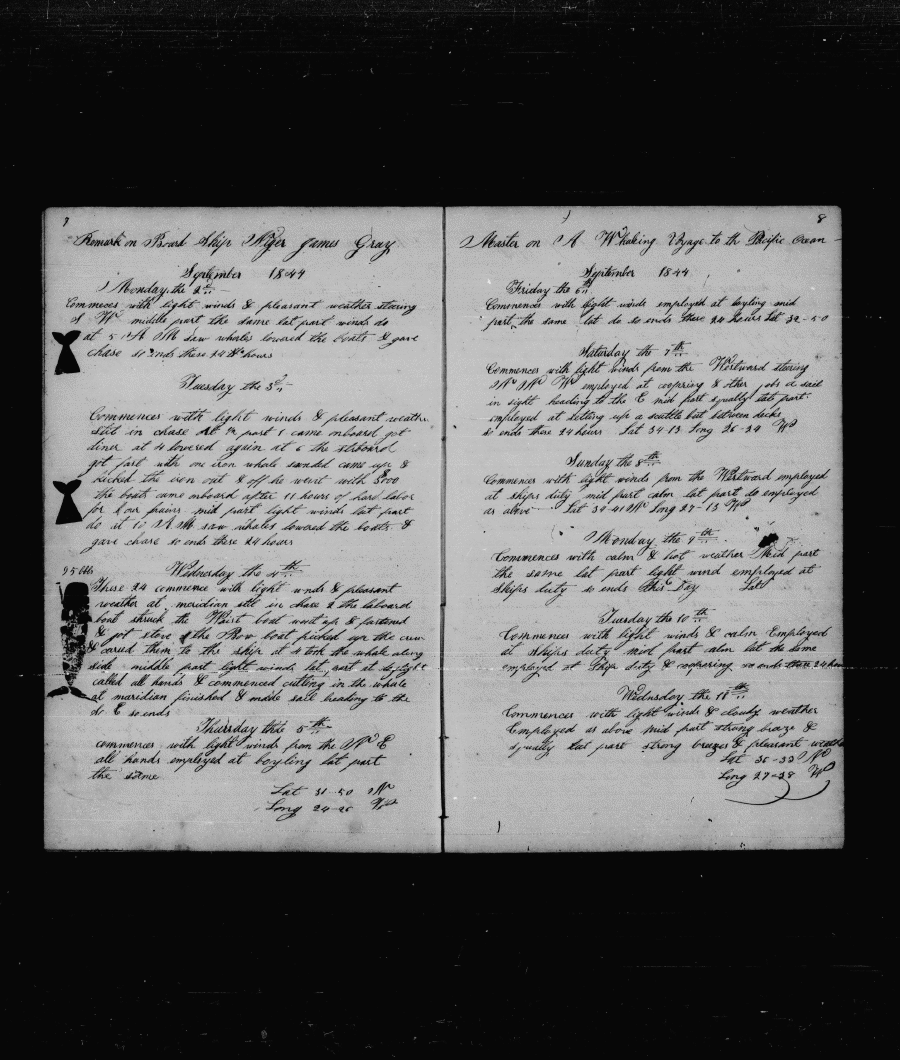 7
Remark on Board Ship Niger James Gray
September 1844
Monday the 2d
Commeces with light winds & pleasant weather stering
W middle part the same lat part winds do
at 5 A M saw whales lowered the boats & gave
chase so ends these 24 hours
Tuesday the 3d
Commences with light winds & pleasant weathe
still in chase part 1 came onboard got
diner at 4 lowered again at 6 the starboard
got fast with one iron whale sounded came up &
kicked the iron out & off he went with $700
the boats came onboard after 11 hours of hard labor
for our pains mid part light winds lat part
do at 10 A M saw whales lowered the boats &
gave chase so ends these 24 hours
95 bbls
Wednesday the 4th
These 24 commence with light winds & pleasant
weather at meridian still in chase 2 the larboard
boat struck the Waist boat went up & fastened
& got stove the Bow boat picked up the crew
& caried them to the ship at 4 took the whale along
side middle part light winds lat part at daylight
called all hands & commenced cutting in the whale
at maridian finished & made sail heading to the
E so ends
Thursday the 5th
commences with light winds from the N E
all hands employed at boyling lat part
the same
Lat 31-50 N
Long 24-26 W
8
Master on A Whaking Voyage to th Pacific Ocean
September 1844
Friday the 6th
Commences with light winds employed at boyling mid
part the same lat do so ends these 24 hours Lat 32-50
Saturday the 7th
Commences with light winds from the Westward steering
N N W employed at coopring & other jobs a sail
in sight heading to the E mid part squally lat part
employed at setting up a scuttle but between decks
so ends these 24 hours Lat 34-13 Long 26-34 W
Sunday the 8th
Commences with light winds from the Westward employed
at ships duty mid part calm lat part do employed
as above Lat 34-41 N Long 27-13 W
Monday the 9th
Commences with calm & hot weather Mid part
the same lat part light wind employed at
ships duty so ends This Day Lat
Tuesday the 10th
Commences with light winds & calm Employed
at ships duty mid part calm lat the same
employed at Ship duty & coopering so ends these 24 hours
Wednesday the 11th
Commences with light winds & cloudy weather
Employed as above mid part strong breze &
squally lat part strong brezes & pleasant weathe
Lat 36-33 N
Long 27-28 W